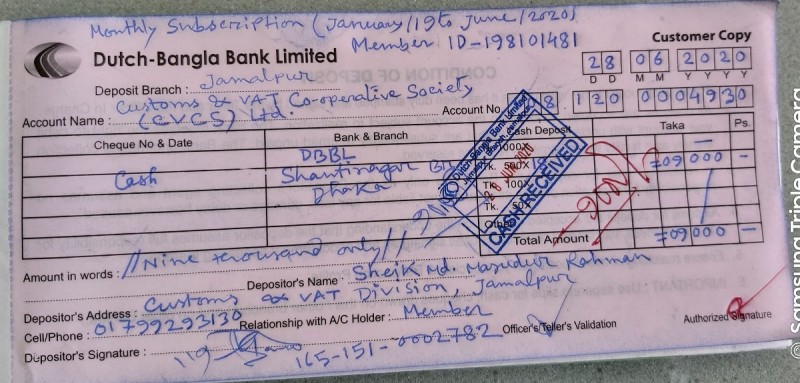 Monthly Subscription (January/19 to June/2020)
Member ID-198101481
Customer Copy
Dutch-Bangla Bank Limited
28 06 2020
D D M M Y Y Y Y
Deposit Branch : Jamalpur
Customs & VAT Co-operative Society
Account Name : (CVCS) Ltd.
Account No. 8 120 0004930
Cheque No & Date Bank & Branch Cash Deposit Taka Ps.
Cash DBBL
Shantinagar
Dhaka
Tk. 500X 18 =09000 -
Tk. 100X
Tk. 50X
Total Amount =09000 -
Dutch-Bangla Bank Limited
28 JUN 2020
CASH RECEIVED
Amount in words : //Nine thousand only//
Depositor's Name : Sheik Md. Masudur Rahman
Depositor's Address : Customs & VAT Division, Jamalpur
Cell/Phone : 01799293130 Relationship with A/C Holder : Member
Depositor's Signature : 165-151-0002782 Officer's/Teller's Validation Authorized Signature
© Samsung Triple Camera